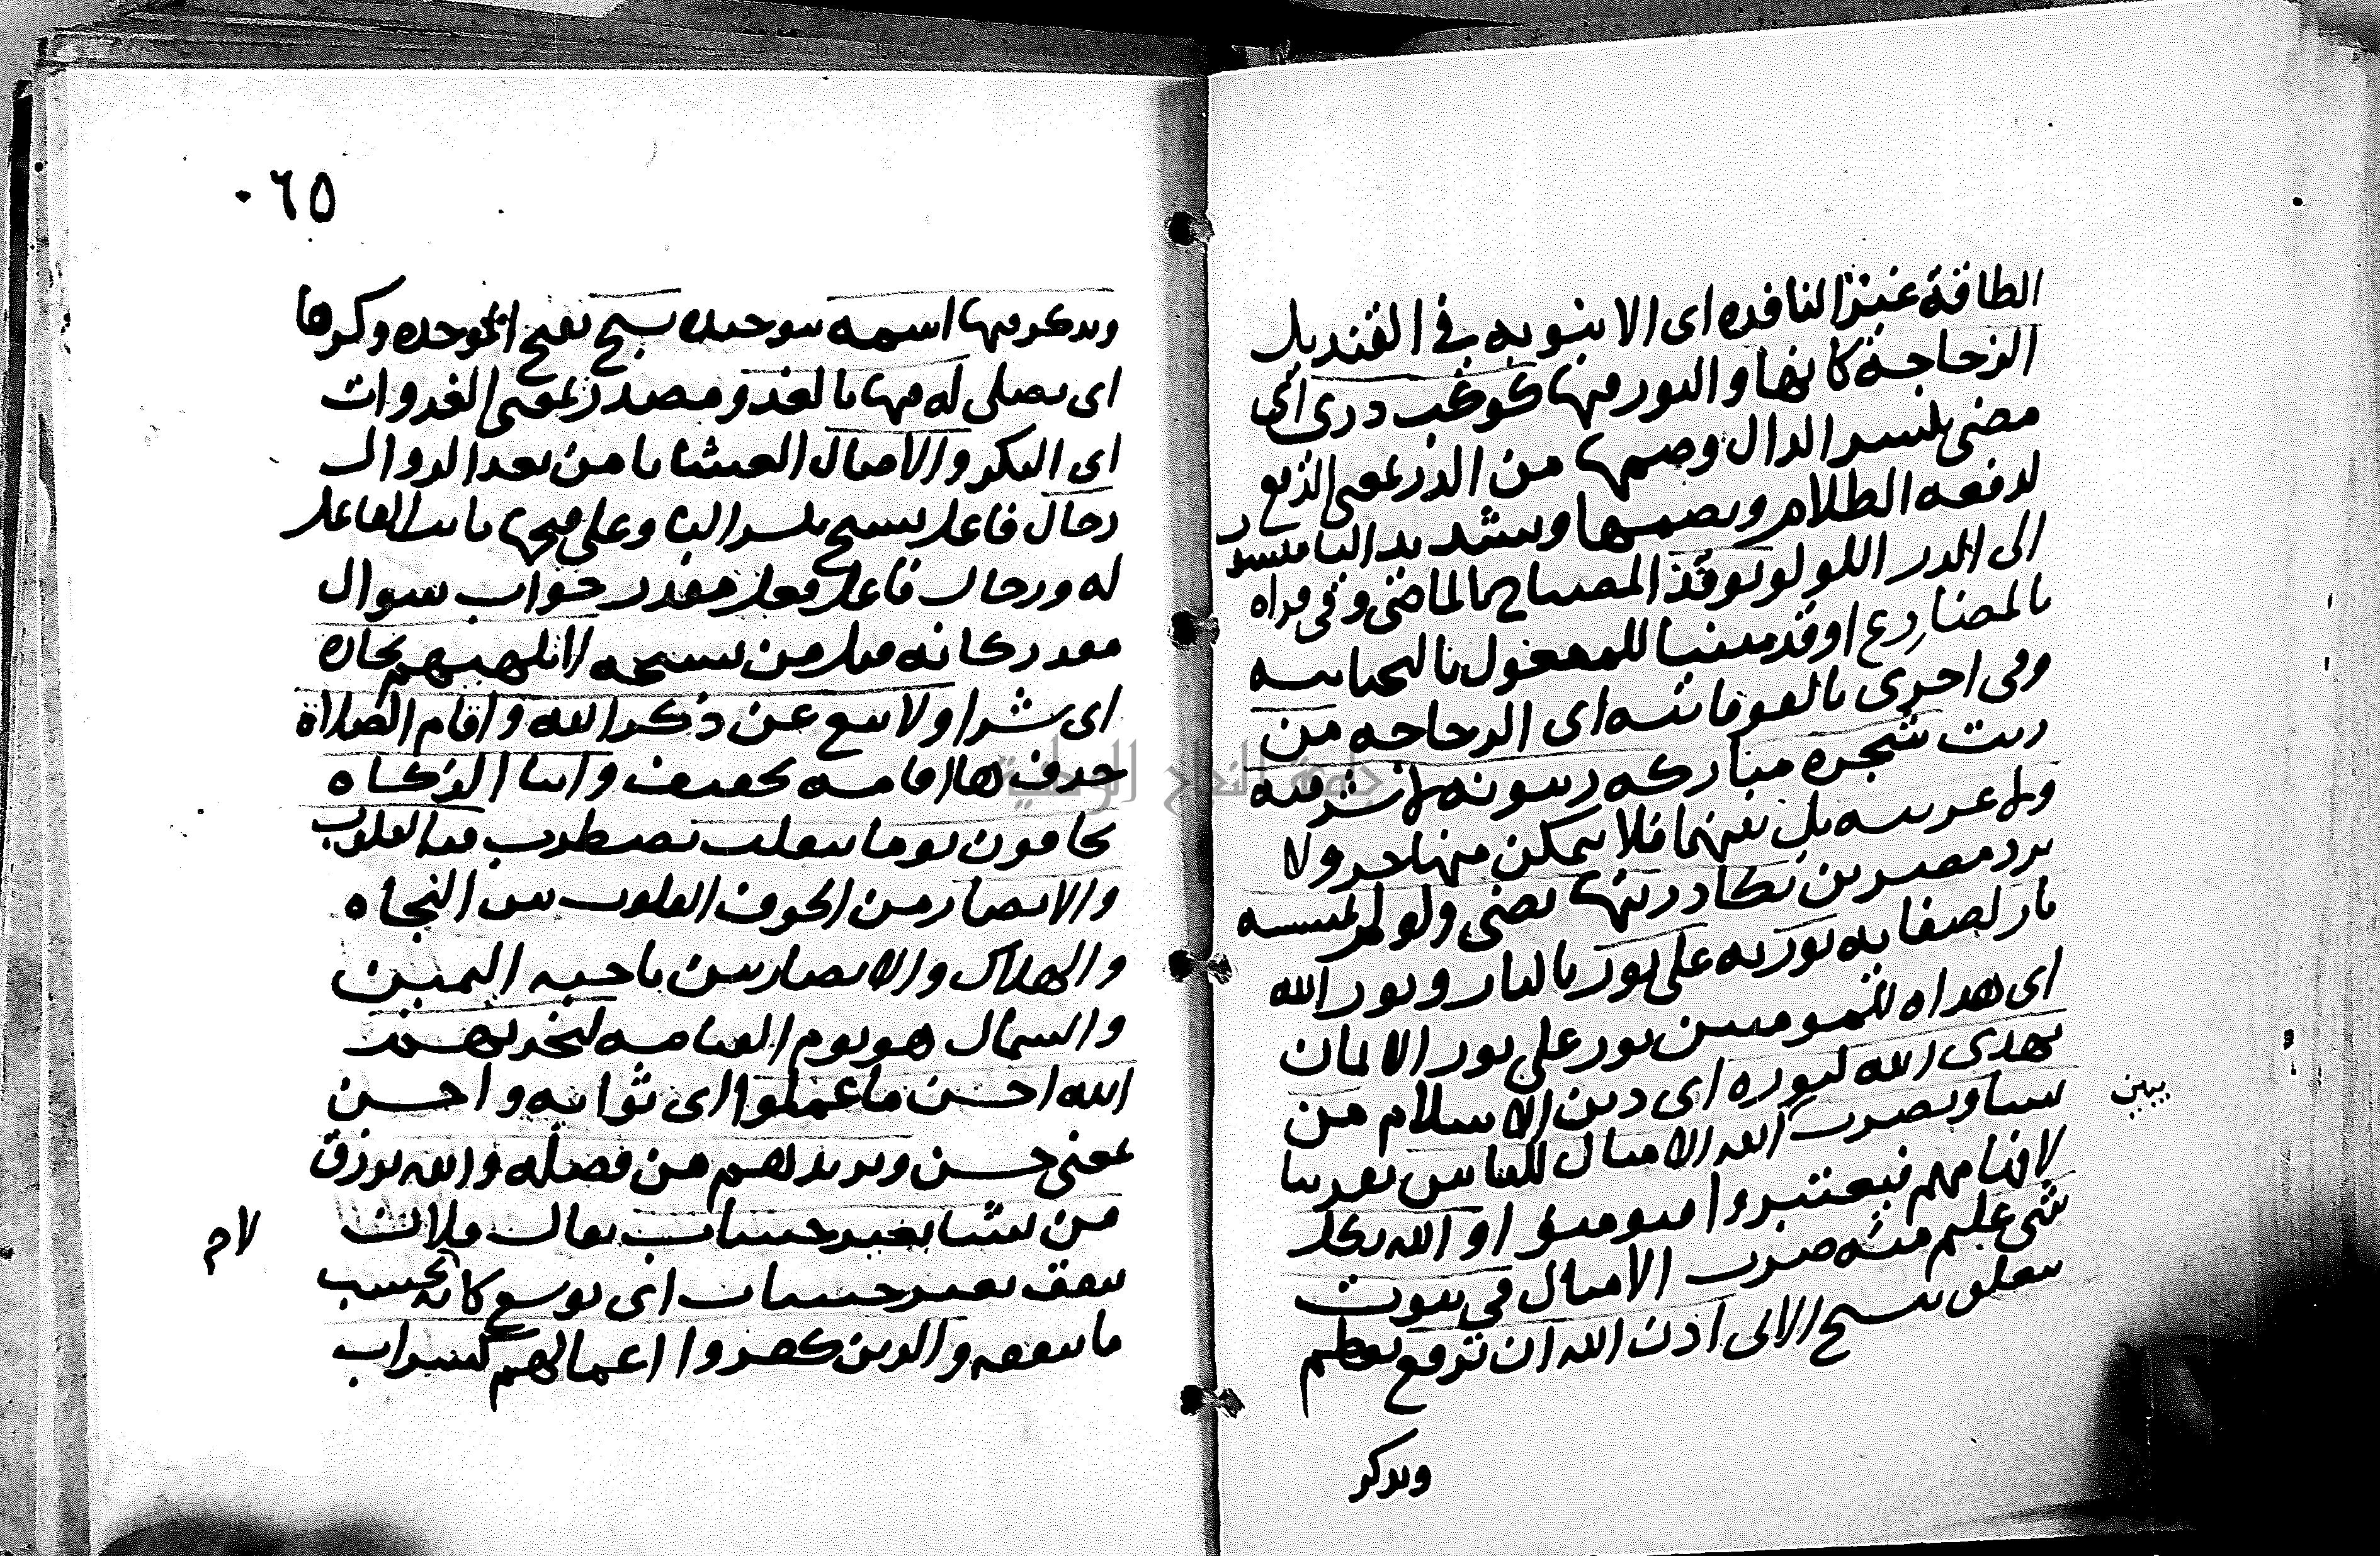 الطاقة غير النافده اى الانبوبه في القنديل
الزجاجة كانها والنور فيها كوكب درى اى
مضى بكسر الدال وضمها من الدر بمعنى الدفع
لدفعه الظلام وبضمها وتشديد اليا منسوب
الى الدر اللولو توقد المصباح بالماضى وفى قراه
بالمضارع اوقد مبنيا للمفعول بالتحتانيه
وفى اخرى بالفوقانيه اى الزجاجه من
زيت شجره مباركه زيتونه لا شرقيه
ولا غربيه بل بينهما فلا يتمكن منها حر ولا
برد مضرين يكاد زيتها يضى ولو لم تمسسه
نار لصفايه نور به على نور بالنار ونور الله
اى هداه للمومنين نور على نور الايمان
يهدى الله لنوره اى دين الاسلام من
يشا ويضرب الله الامثال للناس تقريبا
يبين
لافهامهم فيعتبروا فيومنوا والله بكل
شى عليم منه ضرب الامثال فى بيوت
يتعلق بيسبح الاتى اذن الله ان ترفع تعظم
ويذكر
٠٦٥
ويذكر فيها اسمه بتوحيده يسبح بفتح الموحده وكسرها
اى يصلى له فيها بالغدو مصدر بمعنى الغدوات
اى البكر والاصال العشايا من بعد الزوال
رجال فاعل يسبح بكسر البا وعلى فتحها نايب الفاعل
له ورجال فاعل فعل مقدر جواب سوال
مقدر كانه قيل من يسبحه لا تلهيهم تجاره
اى شرا ولا بيع عن ذكر الله واقام الصلاة
حذف ها اقامه تخفيف وايتا الزكاه
يخافون يوما تتقلب تضطرب فيه القلوب
والابصار من الخوف القلوب بين النجاه
والهلاك والابصار بين ناحيه اليمين
والشمال هو يوم القيامه ليجزيهم
الله احسن ما عملوا اى ثوابه واحسن
بمعنى حسن ويزيدهم من فضله والله يرزق
من يشا بغير حساب يقال فلان
لام
ينفق بغير حساب اى يوسع كانه لا يحسب
ما ينفقه والذين كفروا اعمالهم كسراب
جامعة النجاح الوطنية